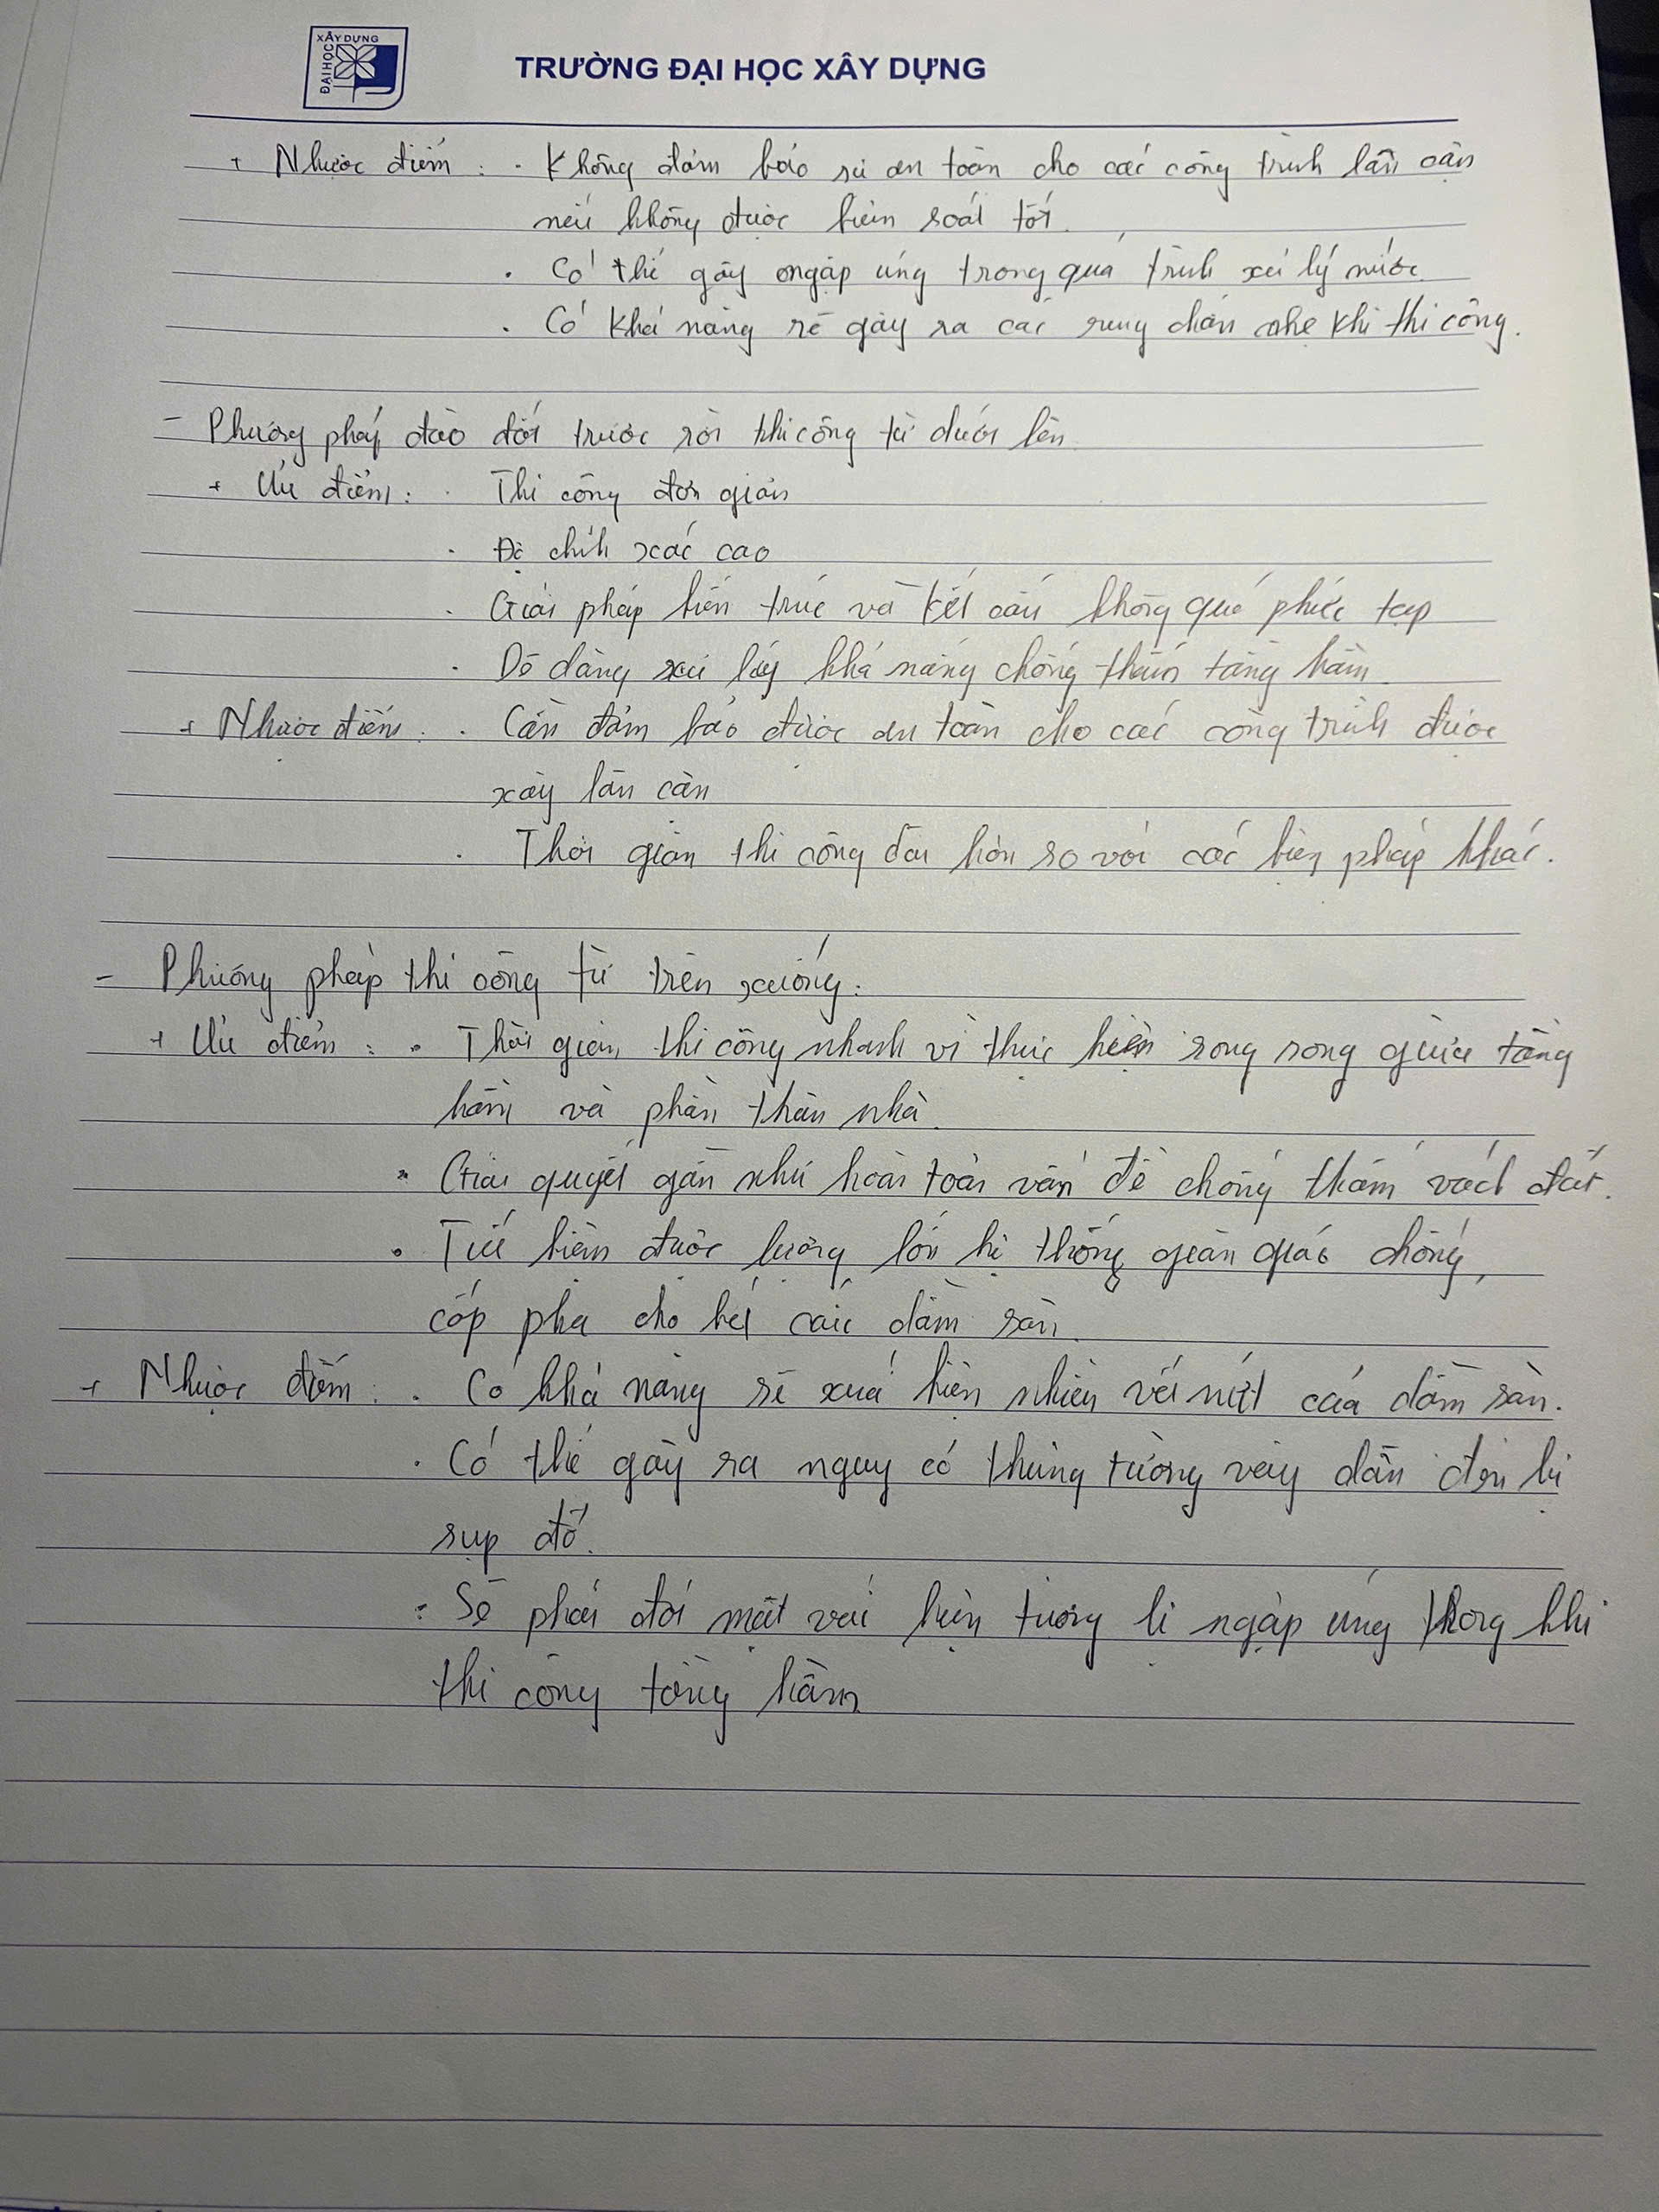 XÂY DỰNG
ĐẠI HỌC
TRƯỜNG ĐẠI HỌC XÂY DỰNG
+ Nhược điểm : . Không đảm bảo sự an toàn cho các công trình lân cận
nếu không được kiểm soát tốt.
. Có thể gây ngập úng trong quá trình xử lý nước.
. Có khả năng sẽ gây ra các rung chấn nhẹ khi thi công.
- Phương pháp đào đất trước rồi thi công từ dưới lên
+ Ưu điểm : . Thi công đơn giản
. Độ chính xác cao
. Giải pháp kiến trúc và kết cấu không quá phức tạp
. Dễ dàng xử lý khả năng chống thấm tầng hầm.
+ Nhược điểm : . Cần đảm bảo được an toàn cho các công trình được
xây lân cận
. Thời gian thi công dài hơn so với các biện pháp khác.
- Phương pháp thi công từ trên xuống :
+ Ưu điểm : . Thời gian thi công nhanh vì thực hiện song song giữa tầng
hầm và phần thân nhà.
. Giải quyết gần như hoàn toàn vấn đề chống thấm vách đất.
. Tiết kiệm được lượng lớn hệ thống giàn giáo chống,
cốp pha cho kết cấu dầm sàn.
+ Nhược điểm : . Có khả năng sẽ xuất hiện nhiều vết nứt của dầm sàn.
. Có thể gây ra nguy cơ thủng tường vây dẫn đến bị
sụp đổ.
. Sẽ phải đối mặt với hiện tượng bị ngập úng trong khi
thi công tầng hầm